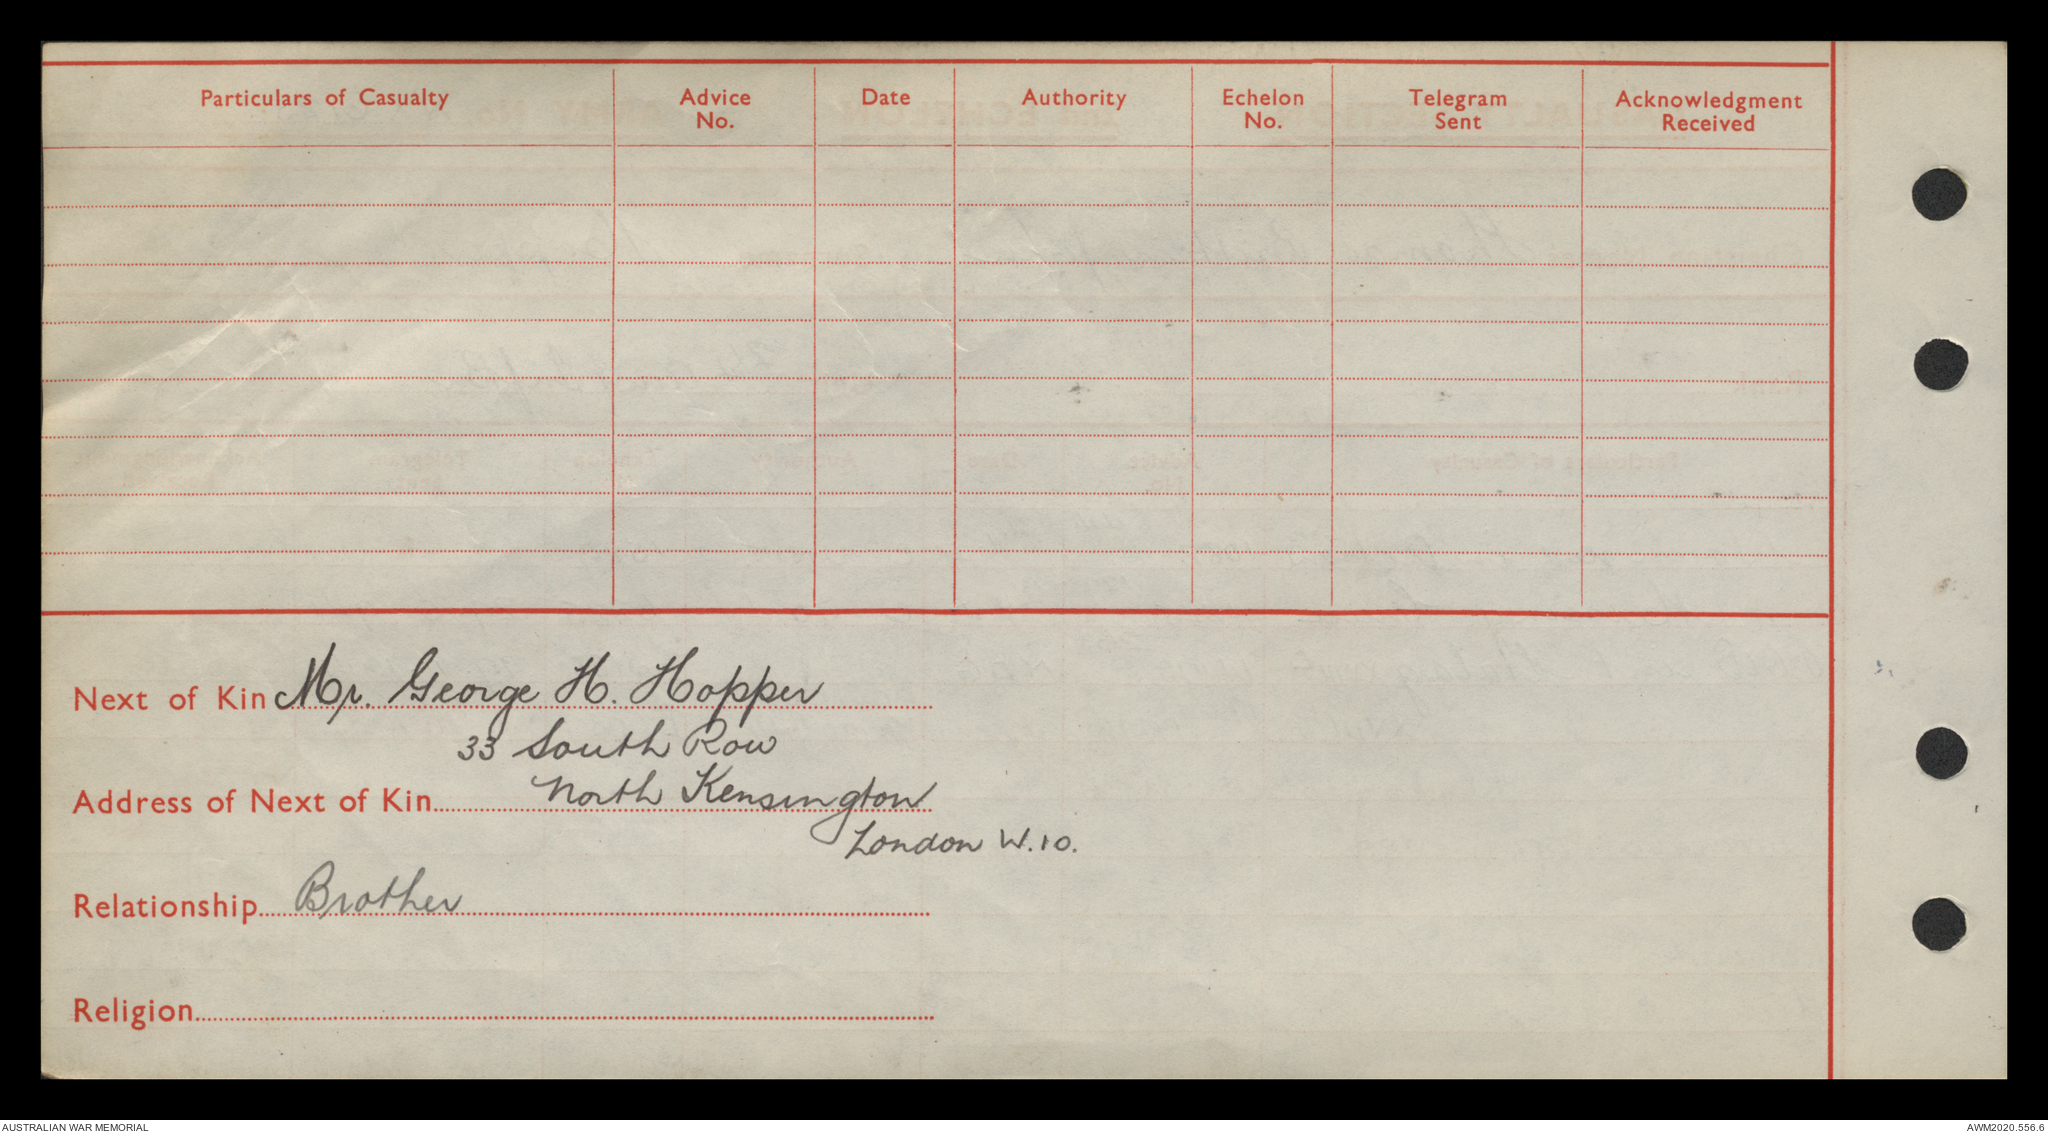 Particulars of Casualty Advice No. Date Authority Echelon No. Telegram Sent Acknowledgment Received
Next of Kin Mr. George H. Hopper
33 South Row
Address of Next of Kin North Kensington
London W.10.
Relationship Brother
Religion
AUSTRALIAN WAR MEMORIAL AWM2020.556.6